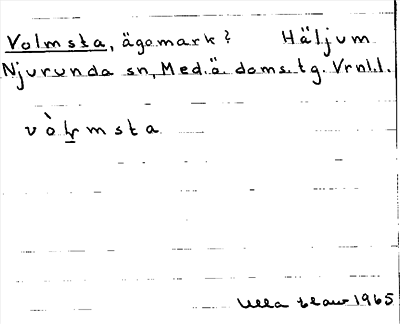 Volmsta, ägomark? Häljum
Njurunda sn, Med.ä. doms.tg. Vrnl.l.
vòl̠msta
Ulla 1965